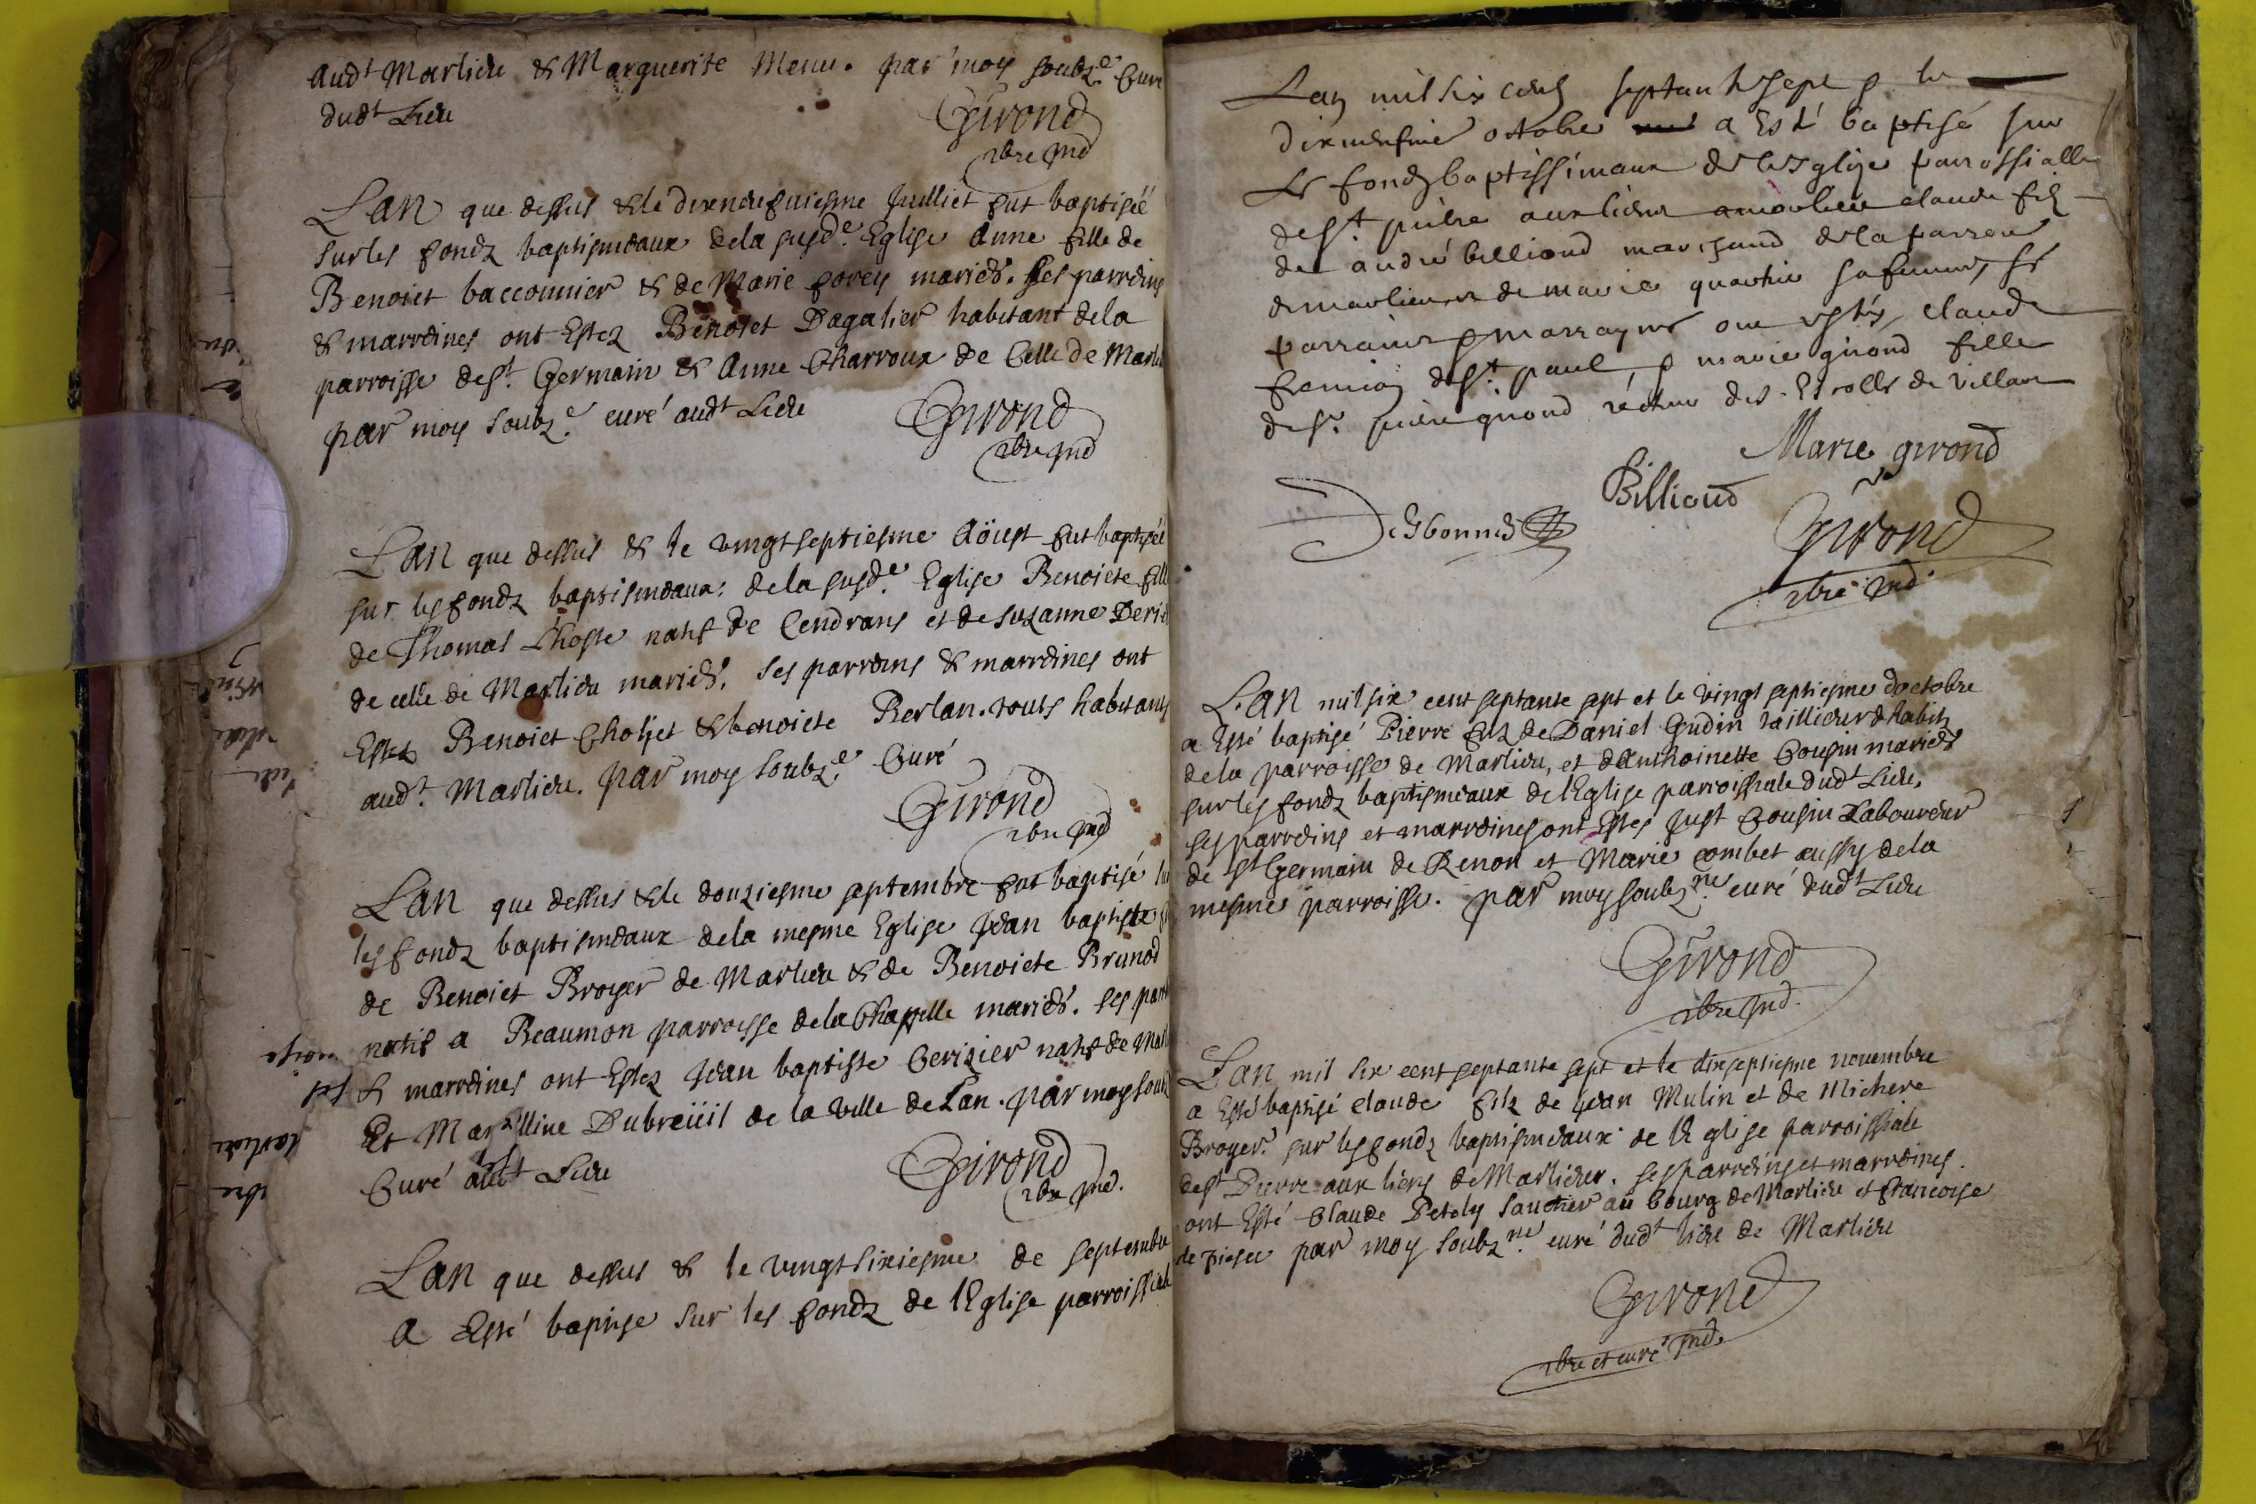 Audt Marlieu & Marguerite Menu. par moy soubze Curé
dudt Lieu
Girond
pbre ind
L'an que dessus & le dixneufviesme Juilliet fut baptiséé
sur les fondz baptismeaux de la susde Eglise Anne fille de
Benoict bacconnier & de Marie forey mariés. Ses parreins
& marreines ont Estez Benoict Dagalier habitant de la
parroisse de St Germain & Anne Charroux de Celle de
par moy soubze curé audt Lieu
Girond
pbre ind
L'an que dessus & le vingtseptiesme Aöust fut baptiséé
sur les fondz baptismeaux de la susde Eglise Benoicte
de Thomas L'hoste natif de Cendrans et de Suzanne
de celle de Marlieu mariés. Ses parreins & marreines ont
Estez Benoict Choljet & benoicte Berlan. touts habitants
audt Marlieu. par moy soubze Curé
Girond
pbre ind
L'an que dessus & le douziesme septembre fut baptisé
les fondz baptismeaux de la mesme Eglise Jean baptiste
de Benoict Broyer de Marlieu & de Benoicte Brunod
natif a Beaumon parroisse de la Chappelle mariés. ses
& marreines ont Estez Jean baptiste Cerizier natif de
Et Dubreüil de la ville de Lan. par moy
Curé audt Lieu
Girond
pbre ind.
L'an que dessus & le vingtsixiesme de septembre
A Esté baptise sur les fondz de l'Eglise parroissiale
Lan mil six cens septante sept & le
dixneufvie octobre a Esté baptisé sur
Le fondz baptissimaux de lesglize parrossialle
de St pierre aux liens a marlieu claude filz
de andré billioud marchand de la parroisse
de marlieu et de marie quartier sa femme, se
parrains & marraynes ont estés, claude
de St paul, & marie girond fille
de Sr pierre girond récteur des Escolle de villars
Marie girond
Billioud
Desbonnes
Girond
pbre ind.
L'an mil six cent septante sept et le vingt septiesme d'octobre
a Esté baptisé Pierre filz de Daniel Gudin taillieur & habit
de la parroisse de Marlieu, et d'Anthoinette Cousin mariés
sur les fondz baptismeaux de l'Eglise parroissiale dudt Lieu,
ses parreins et marreines ont Estés Just Cousin Laboureur
de St Germain de Renon et Marie combet aussy de la
mesme parroisse. par moy soubzne curé dudt Lieu
Girond
pbre ind.
L'an mil six cent septante sept et le dixseptiesme novembre
a Esté baptisé claude filz de Jean Mulin et de Michere
Broyer. sur les fondz baptismeaux de l'Eglise parroissiale
de St Pierre aux liens de Marlieux. ses parreins et marreines
ont Esté Claude Petely au bourg de Marlieu et francoise
de par moy soubzne curé dudt lieu de Marlieu
Girond
pbre et curé ind.